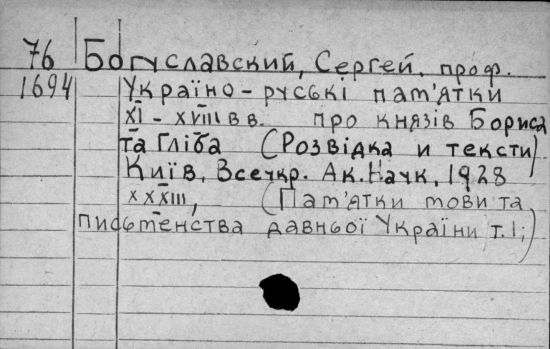 76 Богуславский, Сергей. проф.
1694 Україно-руські пам'ятки
XI - XVIII вв. про князів Бориса
та Гліба (Розвідка и тексти)
Київ, Всеукр. Ак. Наук, 1928
XXXIII, (Пам'ятки мови та
письменства давньої України т. I;)